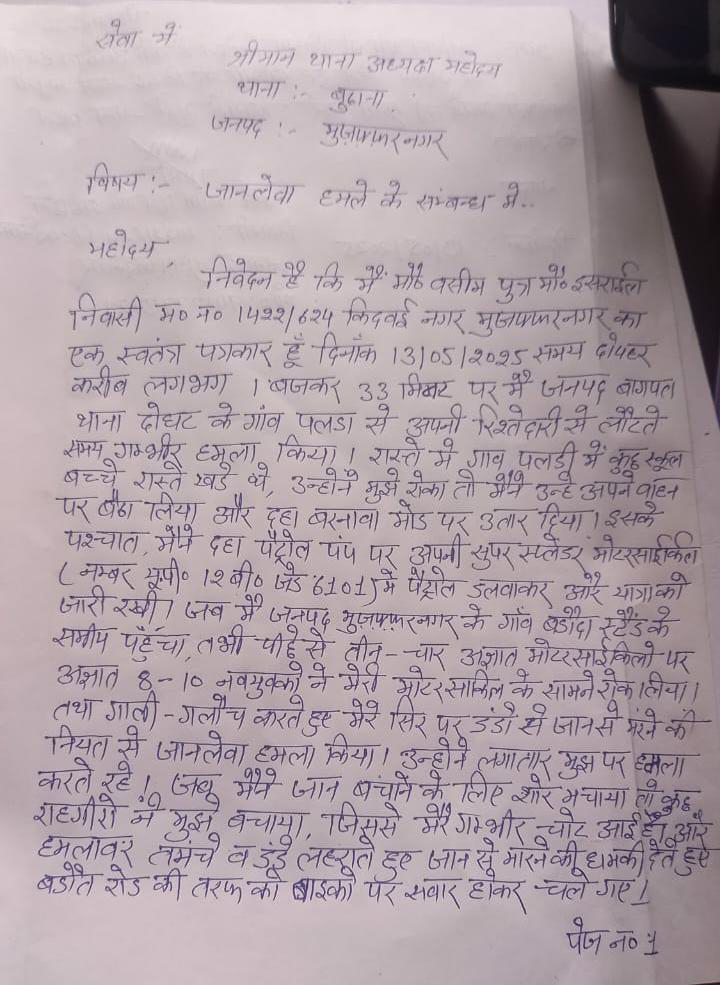 सेवा में
श्रीमान थाना अध्यक्ष महोदय
थाना :- बुढाना
जनपद :- मुज़फ्फरनगर
विषय :- जानलेवा हमले के संम्बन्ध मे..
महोदय,
निवेदन है कि मैं मौ० वसीम पुत्र मौ० इसराईल
निवासी म० न० 1422/624 किदवई नगर मुज़फ्फरनगर का
एक स्वतंत्र पत्रकार हूँ दिनाँक 13/05/2025 समय दोपहर
करीब लगभग 1 बजकर 33 मिनट पर मै जनपद बागपत
थाना दोघट के गांव पलडा से अपनी रिश्तेदारी से लौटते
समय गम्भीर हमला किया। रास्ते मे गाव पलडी में कुछ स्कूल
बच्चे रास्ते खडे थे, उन्होने मुझे रोका तो मैने उन्हे अपने वाहन
पर बैठा लिया और दहा बरनावा मोड पर उतार दिया। इसके
पश्चात, मैने दहा पैट्रोल पंप पर अपनी सुपर स्प्लेंडर मोटरसाईकिल
(नम्बर यू.पी० 12 बी० जेड 6101) मे पैट्रोल डलवाकर और यात्रा को
जारी रखी। जब मै जनपद मुज़फ्फरनगर के गाँव बडौदा स्टैंड के
समीप पहुँचा, तभी पीछे से तीन-चार अज्ञात मोटरसाईकिलो पर
अज्ञात 8-10 नवयुवको ने मेरी मोटरसाकिल के सामने रोक लिया।
तथा गाली-गलौच करते हुए मेरे सिर पर डंडो से जान से मरने की
नियत से जानलेवा हमला किया। उन्होने लगातार मुझ पर हमला
करते रहे। जब मैने जान बचाने के लिए शोर मचाया तो कुछ
राहगीरो ने मुझे बचाया, जिससे मेरे गम्भीर चोट आई है। और
हमलावर तमंचे व डंडे लहराते हुए जान से मारने की धमकी देते हुए
बडौत रोड की तरफ को बाइको पर सवार होकर चले गए।
पेज न० 1